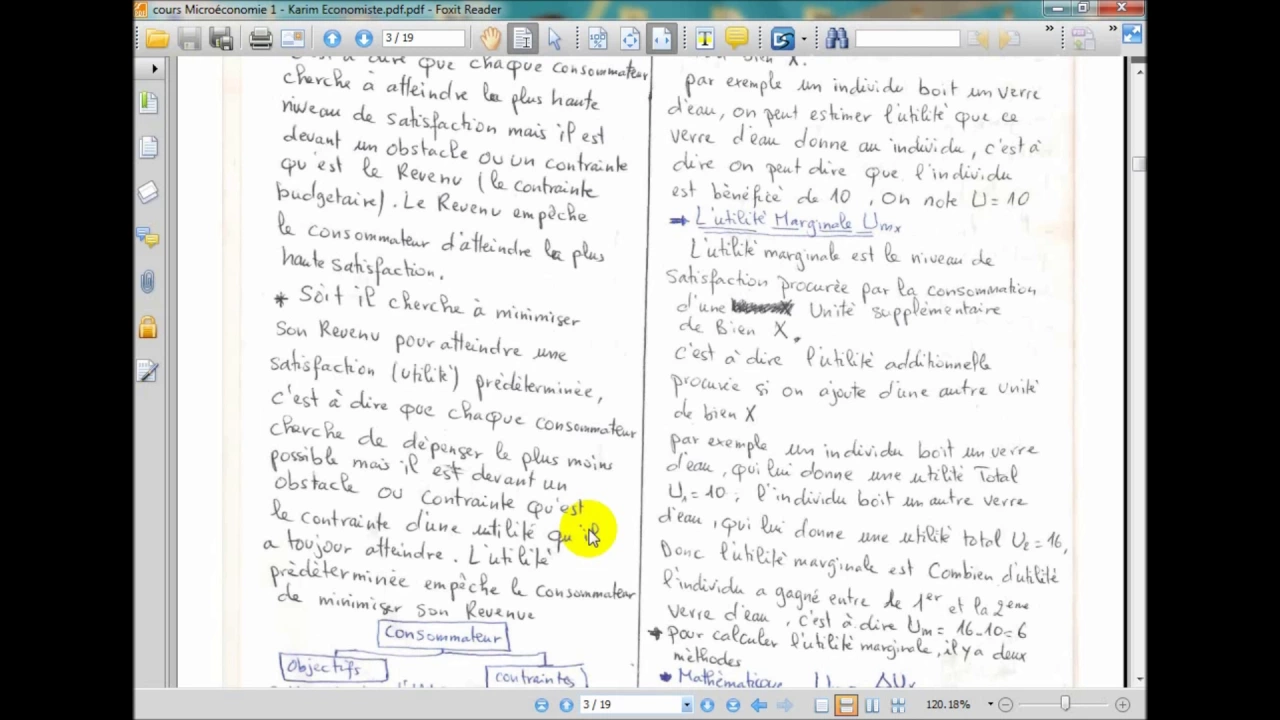 cours Microéconomie 1 - Karim Economiste.pdf.pdf - Foxit Reader
3 / 19
à dire que chaque consommateur
cherche à atteindre la plus haute
niveau de satisfaction mais il est
devant un obstacle ou un contrainte
qu'est le Revenu (le contrainte
budgetaire). Le Revenu empêche
le consommateur d'atteindre la plus
haute satisfaction.
* Soit il cherche à minimiser
son Revenu pour atteindre une
satisfaction (utilité) prédéterminée,
c'est à dire que chaque consommateur
cherche de dépenser le plus moins
possible mais il est devant un
obstacle ou contrainte qu'est
le contrainte d'une utilité qu'il
a toujour atteindre. L'utilité
prédéterminée empêche le consommateur
de minimiser son Revenue
Consommateur
Objectifs
contraintes
bien X.
par exemple un individu boit un verre
d'eau, on peut estimer l'utilité que ce
verre d'eau donne au individu, c'est à
dire on peut dire que l'individu
est bénéficé de 10, On note U = 10
→ L'utilité Marginale Umx
L'utilité marginale est le niveau de
satisfaction procurée par la consommation
d'une Unité supplémentaire
de Bien X.
c'est à dire l'utilité additionnelle
procurée si on ajoute d'une autre unité
de bien X
par exemple un individu boit un verre
d'eau, qui lui donne une utilité Total
U1 = 10 ; l'individu boit un autre verre
d'eau, qui lui donne une utilité total U2 = 16,
Donc l'utilité marginale est Combien d'utilité
l'individu a gagné entre le 1er et la 2ème
verre d'eau, c'est à dire Um = 16-10=6
→ pour calculer l'utilité marginale, il y a deux
méthodes
* Mathématique ΔUx
3 / 19
120.18%